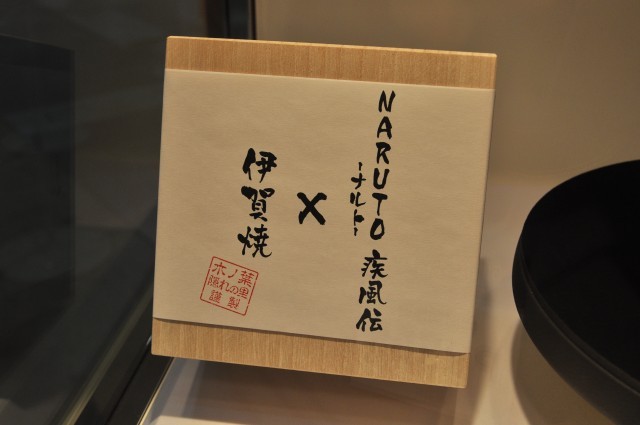 NARUTO
-ナルト-
疾風伝
×
伊賀焼
木ノ葉
隠れの里
謹製